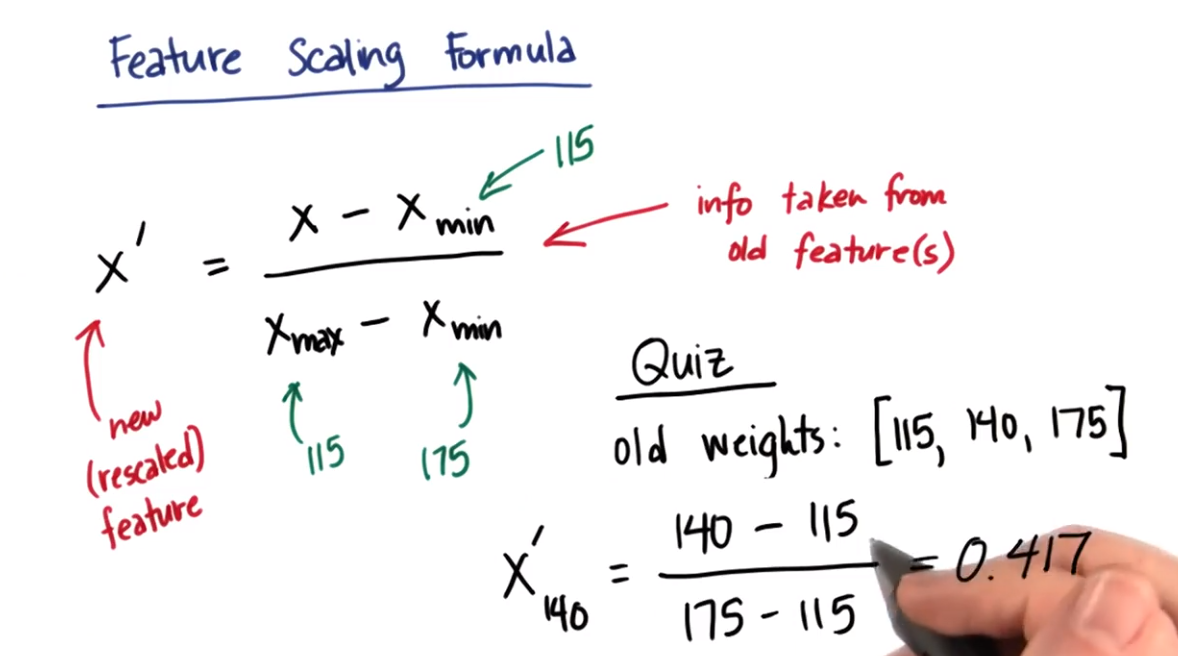 Feature Scaling Formula
115
x' = x - x min
x max - x min
info taken from
old feature(s)
115
175
new
(rescaled)
feature
Quiz
old weights: [115, 140, 175]
x'140 = 140 - 115 = 0.417
175 - 115